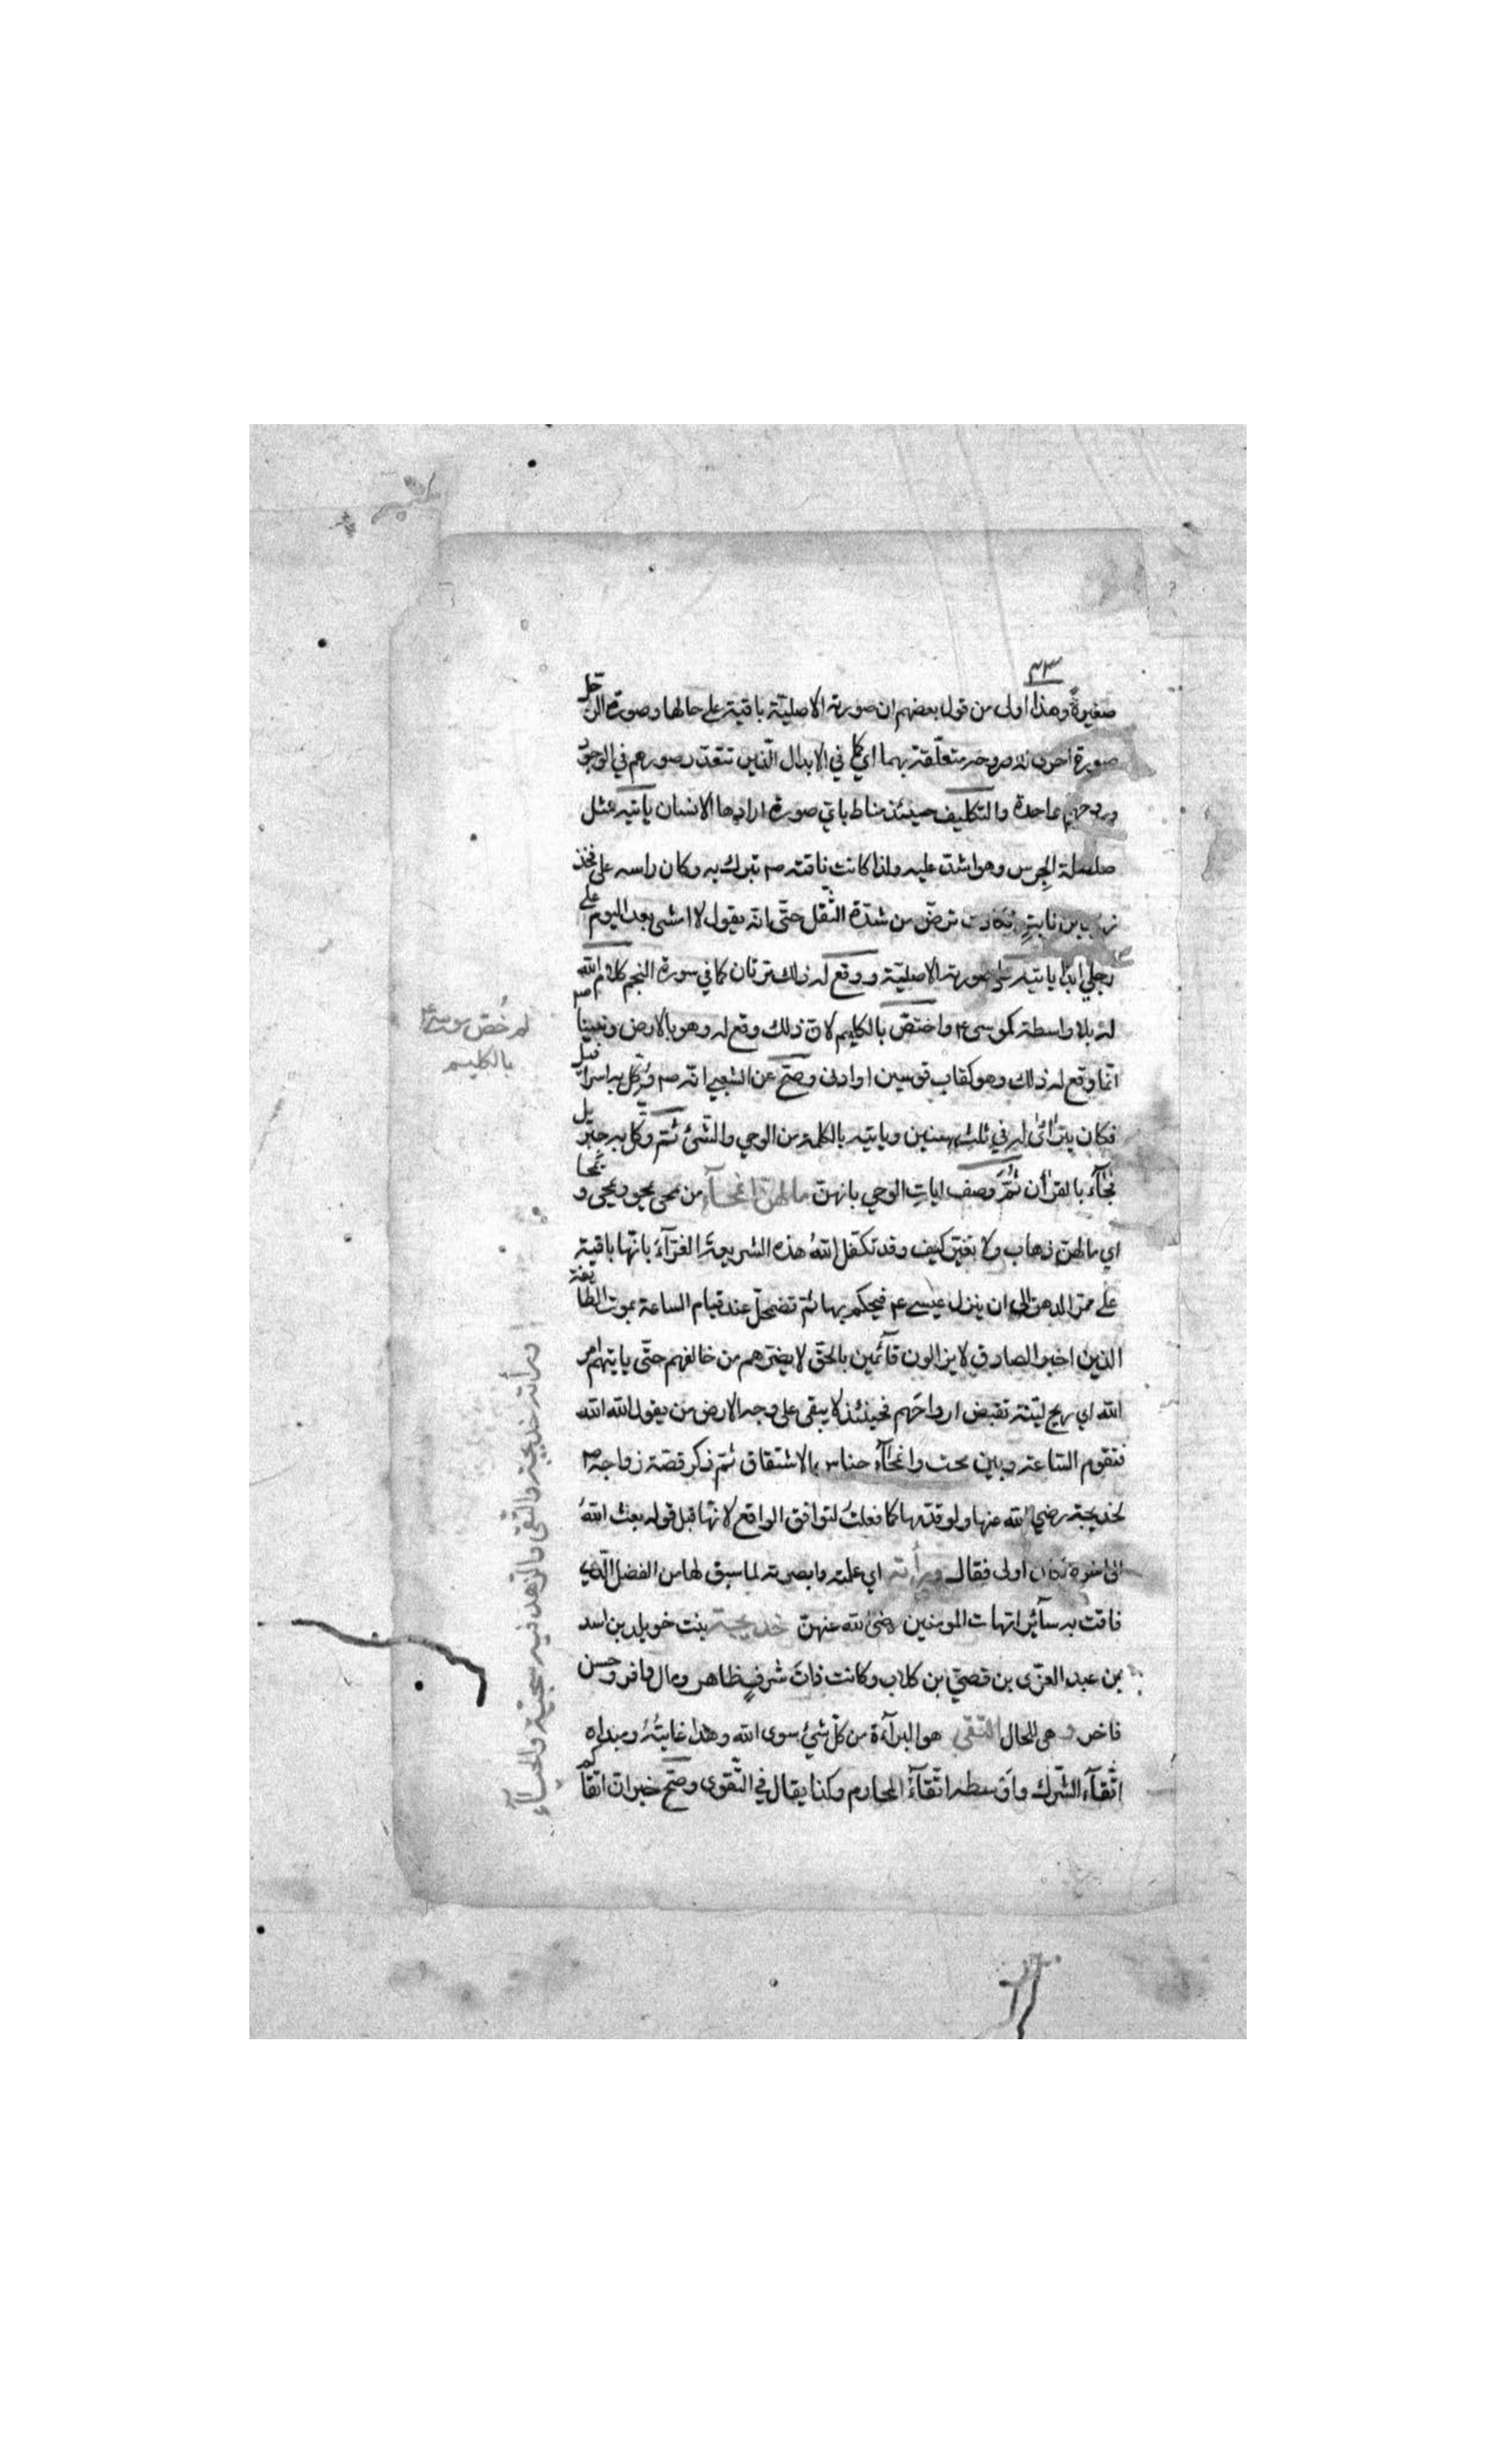 ٤٣
صغيرة وهذا اولى من قول بعضهم ان صورته الاصليّة باقية على حالها وصورة الرجل
صورة اخرى وروحه متعلّقة بهما اي كما في الابدال الّذين تتعدّد صورهم في الوجود
وروحهم واحدة والتكليف حينئذ مناط باي صورة ارادها الانسان ياتيه مثل
صلصلة الجرس وهو اشدّ عليه ولذا كانت ناقته صم تبرك به وكان راسه على فخذ
زيد بن ثابت فكادت ترضّ من شدّة الثقل حتّى انه يقول لا امشي بعد اليوم على
رجلي ابدا ياتيه صورته الاصليّة ووقع له ذلك مرتان كما في سورة النجم كلام الله
له بلا واسطة كموسى ع واختصّ بالكليم لانّ ذلك وقع له وهو بالارض ونبينا صم
انّما وقع له ذلك وهو كقاب قوسين او ادنى وصحّ عن الشعبي انه صم وُكّل به اسرافيل
فكان يترائى له في ثلث سنين وياتيه بالكلمة من الوحي والشّئ ثمّ وكّل به جبريل
فجآء بالقرأن ثمّ وصف ايات الوحي بانهنّ ما لهنّ انمحآء من محى يمحو ويمحى و يمحا
اي ما لهنّ ذهاب ولا تغيّر كيف وقد تكفّل الله هذه الشريعة الغرّآء بانها باقية
على ممرّ الدهر الى ان ينزل عيسى ع فيحكم بها ثم تضمحلّ عند قيام الساعة بموت الطايفة
الذين اخبر الصادق لا يزالون قآئمين بالحق لا يضرّهم من خالفهم حتّى ياتيهم امر
الله اي ريح ليّنة تقبض ارواحهم فحينئذ لا يبقى على وجه الارض من يقول الله الله
فتقوم السّاعة وبين محت وانمحآء جناس بالاشتقاق ثمّ ذكر قصّة زواجه صم
لخديجة رضي الله عنها ولو قدّمها كما فعلت لتوافق الواقع لانّها قبل قوله بعث الله
الى اخره لكان اولى فقال ورأته اي علمته وابصرته لما سبق لها من الفضل الّذي
فاقت به سآئر امّهات المومنين رضي الله عنهنّ خديجة بنت خويلد بن اسد
بن عبد العزّى بن قصيّ بن كلاب وكانت ذات شرف ظاهر ومال وافر وحسن
فاخر و هي للحال التقى هو البرآءة من كلّ شئ سوى الله وهذا غايته ومبداه
اتّقآء الشّرك واوسطه اتّقآء المحارم وكذا يقال في التّقوى وصحّ خبر انّ اتقا
لم خُصّ موسى ع
بالكليم
ورأته خديجة والتقى والزهد فيه سجيّة والحيآء